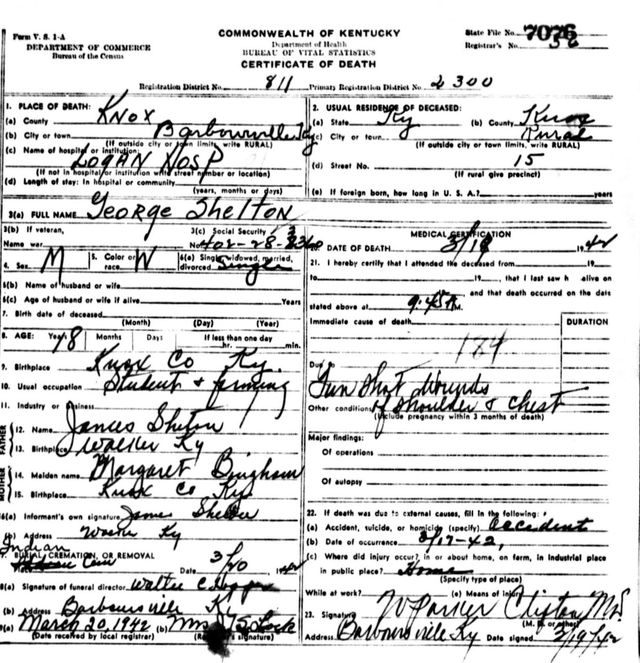 Form V. S. 1-A
DEPARTMENT OF COMMERCE
Bureau of the Census
COMMONWEALTH OF KENTUCKY
Department of Health
BUREAU OF VITAL STATISTICS
CERTIFICATE OF DEATH
State File No. 7076
Registrar's No.
Registration District No. 811 Primary Registration District No. 2300
1. PLACE OF DEATH:
(a) County Knox
(b) City or town Barbourville Ky
(If outside city or town limits, write RURAL)
(c) Name of hospital or institution:
LOGAN HOSP
(If not in hospital or institution write street number or location)
(d) Length of stay: In hospital or community
(years, months or days)
2. USUAL RESIDENCE OF DECEASED:
(a) State Ky (b) County Knox
(c) City or town Rural
(If outside city or town limits, write RURAL)
(d) Street No. 15
(If rural give precinct)
(e) If foreign born, how long in U. S. A.? years
3(a) FULL NAME George Shelton
3(b) If veteran,
Name war
3(c) Social Security
No. 402-28-
4. Sex M 5. Color or race W 6(a) Single, widowed, married, divorced Single
6(b) Name of husband or wife
6(c) Age of husband or wife if alive Years
7. Birth date of deceased
(Month) (Day) (Year)
8. AGE: Years 18 Months Days If less than one day
hr. min.
9. Birthplace Knox Co Ky.
10. Usual occupation Student & farming
11. Industry or Business
FATHER
12. Name James Shelton
13. Birthplace Walker Ky
MOTHER
14. Maiden name Margaret Bingham
15. Birthplace Knox Co Ky.
16(a) Informant's own signature James Shelton
(b) Address Walker Ky
Indian
17. BURIAL, CREMATION, OR REMOVAL
Cem Date 3/20 1942
18(a) Signature of funeral director Walter
(b) Address Barbourville Ky
19(a) March 20, 1942 (b) Mrs Lock
(Date received by local registrar) (Registrar's signature)
MEDICAL CERTIFICATION
20. DATE OF DEATH 3/18 1942
21. I hereby certify that I attended the deceased from 19
to 19 , that I last saw h alive on
, and that death occurred on the date
stated above at 9:45 A M.
Immediate cause of death DURATION
184
Due
Gun Shot Wounds
Other conditions of shoulder & chest
(Include pregnancy within 3 months of death)
Major findings:
Of operations
Of autopsy
22. If death was due to external causes, fill in the following:
(a) Accident, suicide, or homicide (specify) Accident
(b) Date of occurrence 3/17-42,
(c) Where did injury occur? in or about home, on farm, in industrial place
in public place? Home
(Specify type of place)
While at work? (e) Means of injury
23. Signature W Parker Clifton M.D.
(M. D. or other)
Address Barbourville Ky Date signed 3/19/42